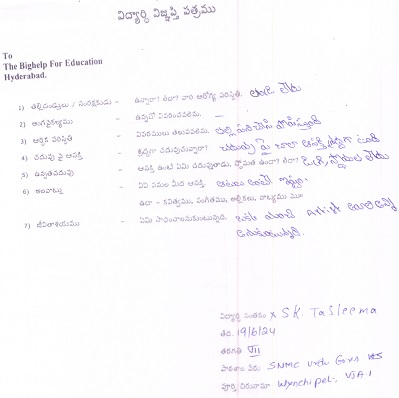 విద్యార్థి విజ్ఞప్తి పత్రము
To
The Bighelp For Education
Hyderabad.
1) తల్లిదండ్రులు / సంరక్షకుడు - ఉన్నారా? లేదా? వారి ఆరోగ్య పరిస్థితి. తండ్రి లేరు
2) అంగవైకల్యము - ఉన్నచో వివరించవలెను. —
3) ఆర్థిక పరిస్థితి - వివరములు తెలుపవలెను. తల్లి పనిచేసి పోషిస్తుంది
4) చదువు పై ఆసక్తి - శ్రద్ధగా చదువుచున్నారా? చదువు పై చాలా ఆసక్తి శ్రద్ధగా ఉంది
5) ఉన్నతచదువు - ఆసక్తి ఉంటే ఏమి చదువుతాడు, స్తోమత ఉందా? లేదా? స్తోమత లేదు
6) అలవాట్లు - ఏఏ పనుల మీద ఆసక్తి. ఆటలు అంటే ఇష్టం.
ఉదా - కవిత్వము, సంగీతము, అల్లికలు, నాట్యము మొ॥
7) జీవితాశయము - ఏమి సాధించాలనుకుంటున్నది. ఒక మంచి Artist కావాలని
అనుకుంటున్నది.
విద్యార్థి సంతకం x SK. Tasleema
తేది. 19/6/24
తరగతి VII
పాఠశాల పేరు SNMC Urdu Govn HS
పూర్తి చిరునామా Wynchipet, VJA-1